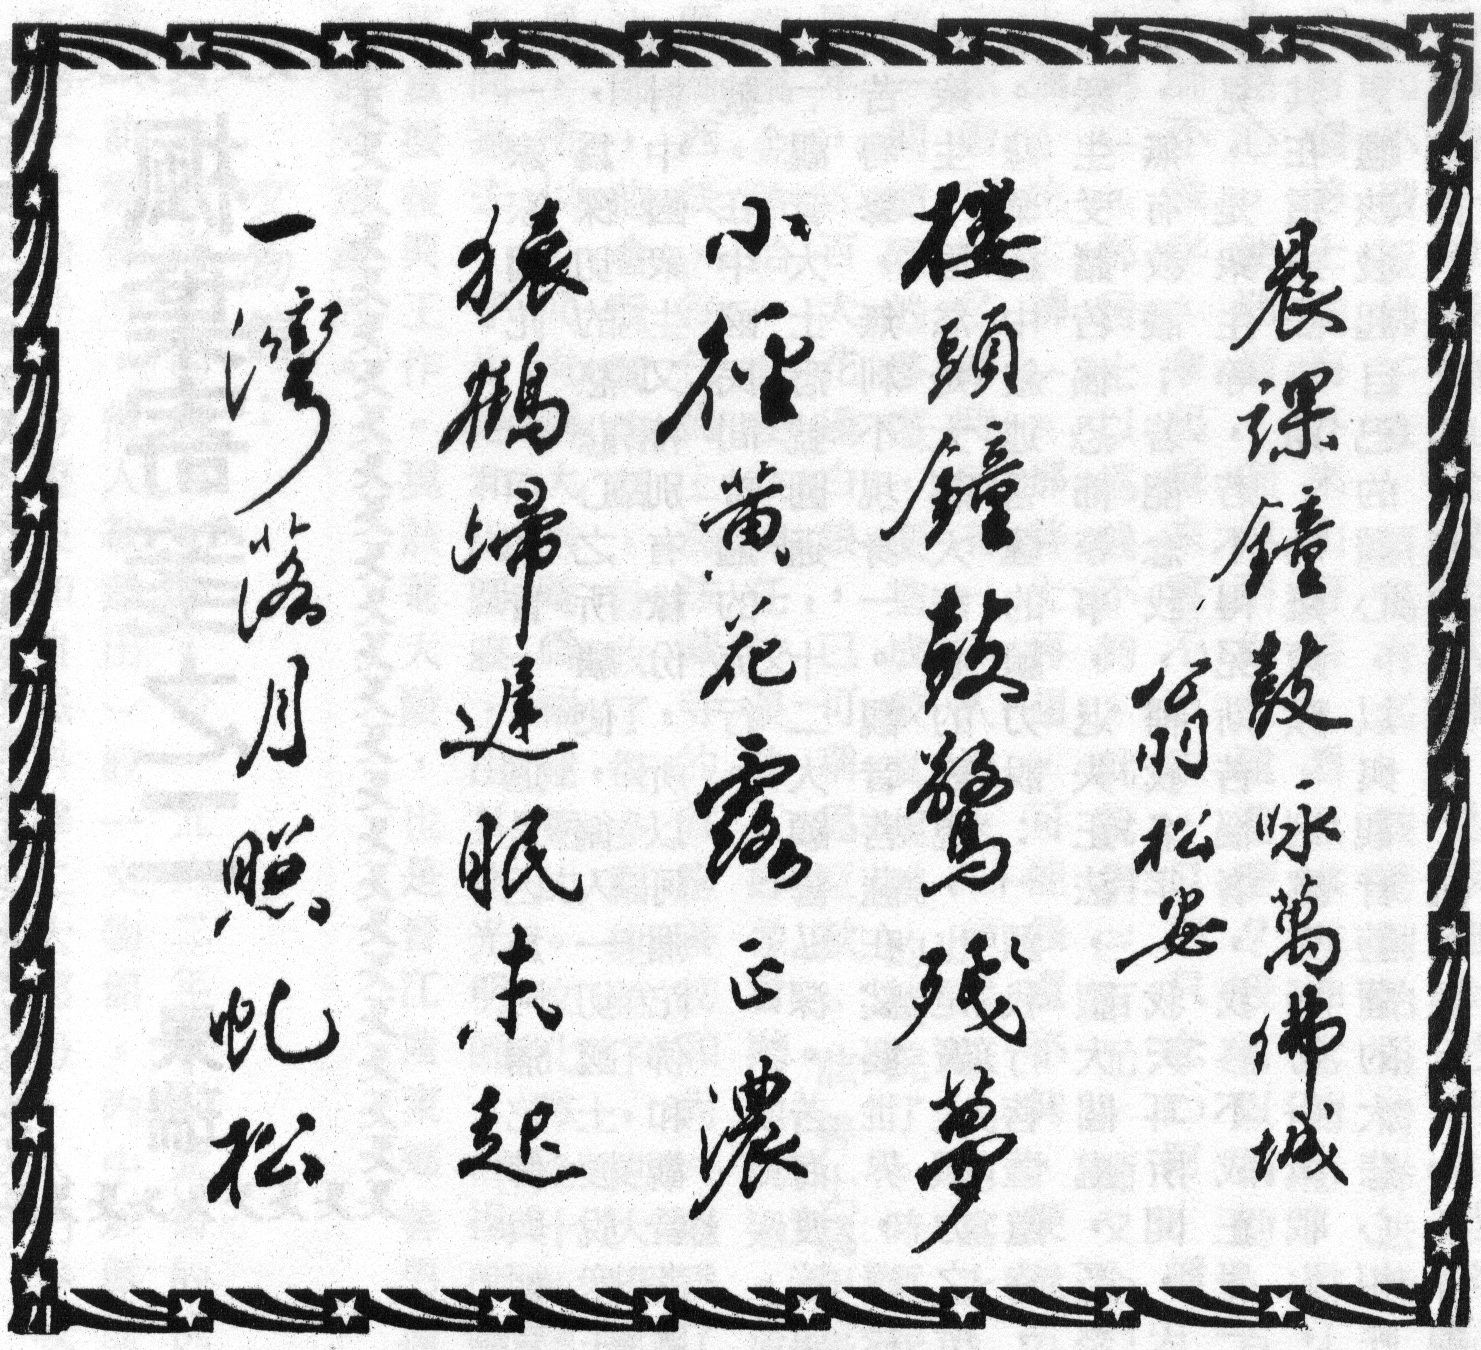 晨課鐘鼓咏萬佛城
公明松安
樓頭鐘鼓驚殘夢
小徑黃花露正濃
猿鶴歸遲眠未起
一灣落月照虬松